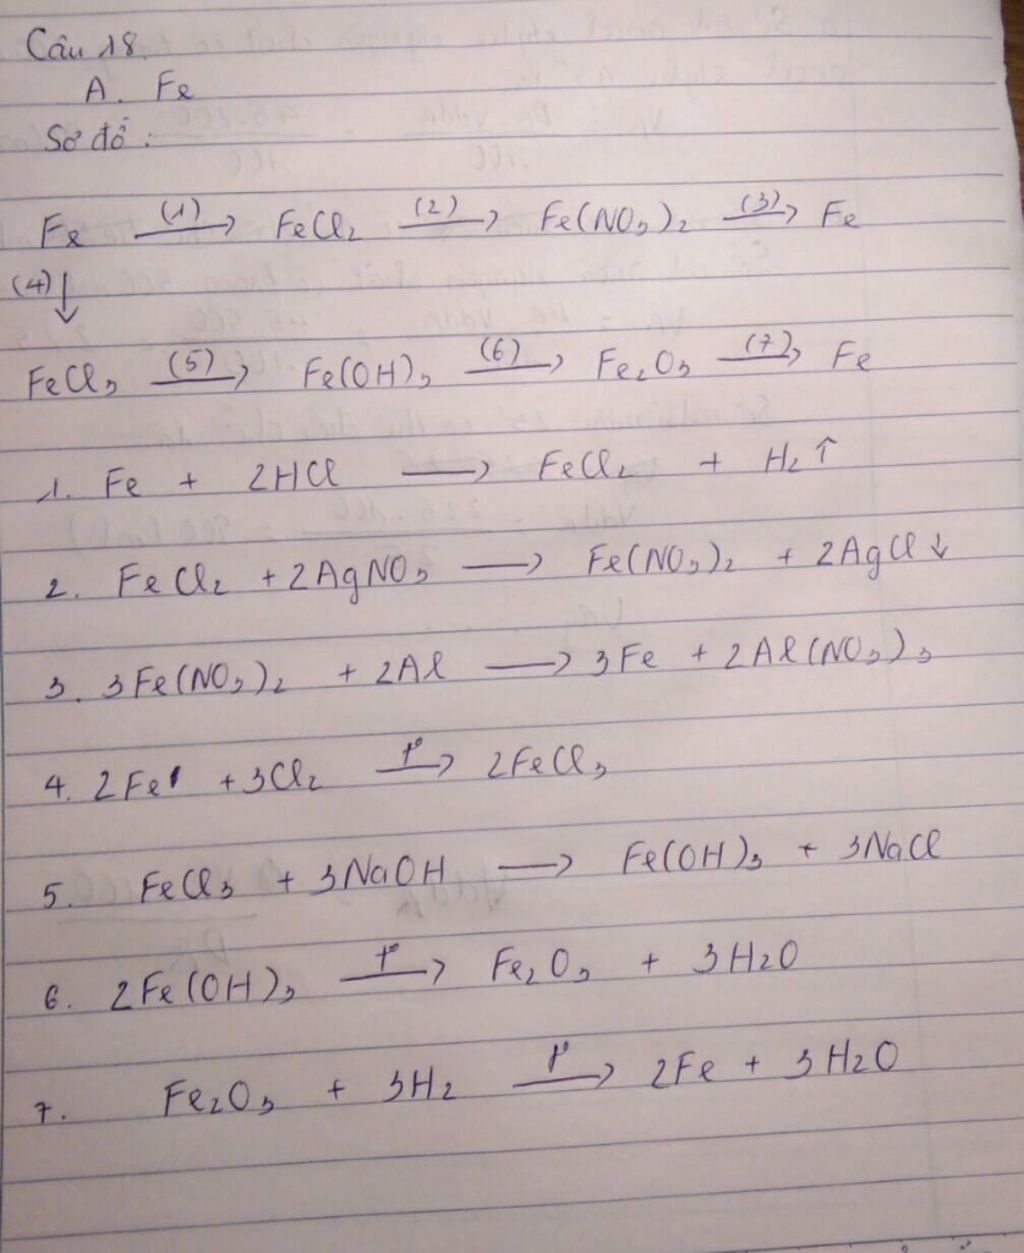 Câu 18.
A. Fe
Sơ đồ:
Fe (1)→ FeCl₂ (2)→ Fe(NO₃)₂ (3)→ Fe
(4)↓
FeCl₃ (5)→ Fe(OH)₃ (6)→ Fe₂O₃ (7)→ Fe
1. Fe + 2HCl → FeCl₂ + H₂↑
2. FeCl₂ + 2AgNO₃ → Fe(NO₃)₂ + 2AgCl↓
3. 3Fe(NO₃)₂ + 2Al → 3Fe + 2Al(NO₃)₃
4. 2Fe + 3Cl₂ t°→ 2FeCl₃
5. FeCl₃ + 3NaOH → Fe(OH)₃ + 3NaCl
6. 2Fe(OH)₃ t°→ Fe₂O₃ + 3H₂O
7. Fe₂O₃ + 3H₂ t°→ 2Fe + 3H₂O